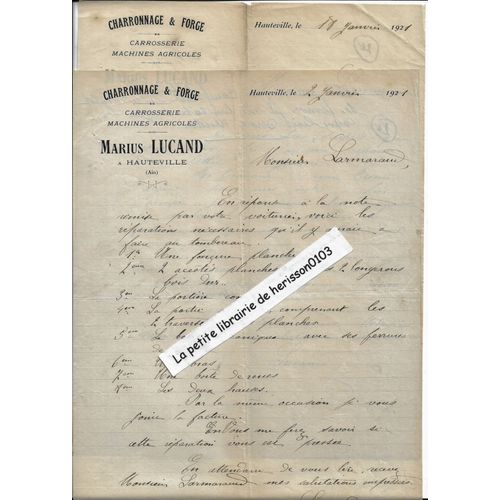 CHARRONNAGE & FORGE
CARROSSERIE
MACHINES AGRICOLES
Hauteville, le 18 Janvier 1921
CHARRONNAGE & FORGE
CARROSSERIE
MACHINES AGRICOLES
MARIUS LUCAND
A HAUTEVILLE
(Ain)
Hauteville, le 2 Janvier 1921
Monsieur Larmaraud,
En réponse à la note
remise par votre voiturier, voici les
réparations nécessaires qu'il y aurait a
faire au tombereau.
1er Une fonçure planche
2em 2 planches 2 longerons
bois dur
3em La portière
4em La partie comprenant les
2 traverses planches
5em Le avec ses ferrures
6em bras
7em Une boite de roues
8em Les deux hausses.
Par la même occasion je vous
joins la facture.
En vous me ferez savoir si
cette réparation vous est pressée.
En attendant de vous lire, recevez
Monsieur Larmaraud mes salutations empressées
La petite librairie de herisson0103